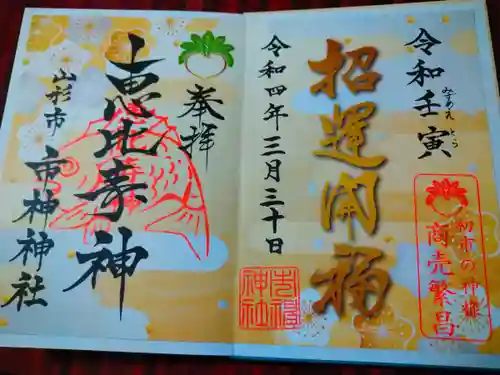 令和壬寅
みずのえ とら
初市の神様
商売繁昌
招運開福
令和四年三月三十日
吉福神社
奉拝
恵比寿神
山形市
市神神社